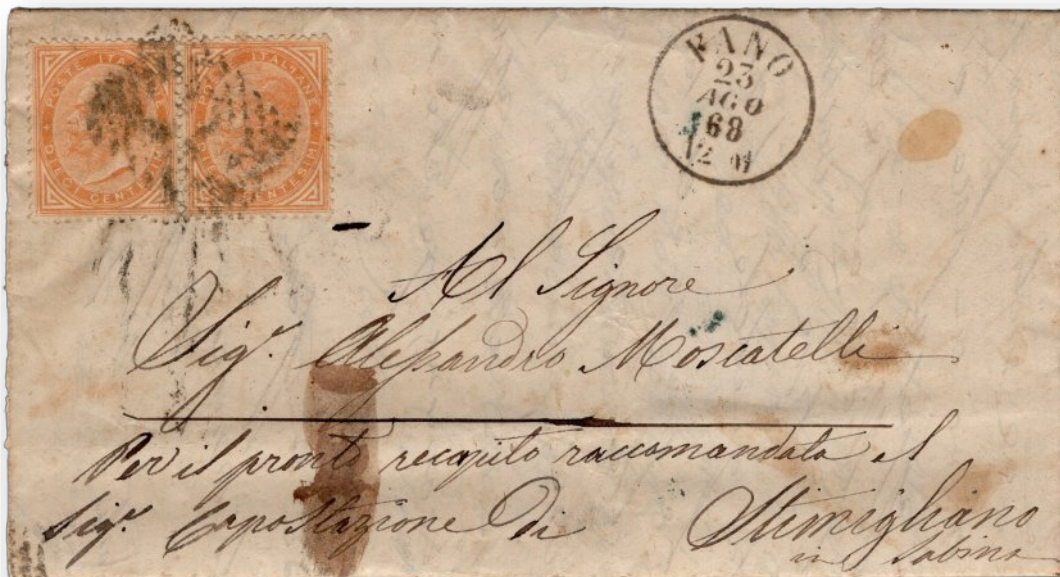 POSTE ITALIANE
DIECI CENT
POSTE ITALIANE
CENTESIMI
FANO
23
AGO
68
Al Signore
Sigr. Alessandro Moscatelli
Per il pronto recapito raccomandata al
Sigr. Capostazione di Stimigliano
in Sabina